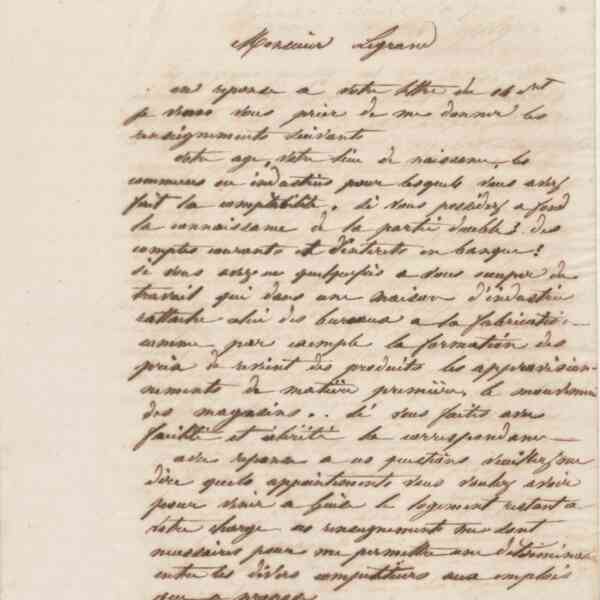 Monsieur Legrand
en reponse a votre lettre du 14 Ct
je viens vous prier de me donner les
renseignements suivants
votre age, votre lieu de naissance, les
commerces ou industries pour lesquels vous avez
fait la comptabilité, si vous possédez a fond
la connaissance de la partie double? des
comptes courants et d'interets en banque?
si vous avez eu quelquefois a vous occuper du
travail qui dans une maison d'industrie
rattache celui des bureaux a la fabrication
comme par exemple la formation des
prix de revient des produits les approvision-
nements de matière première, le mouvement
des magasins.. si vous faites avec
facilité et célérité la correspondance
avec reponse a ces questions veuillez me
dire quels appointements vous voulez avoir
pour venir a Guise le logement restant a
votre charge ces renseignements me sont
necessaires pour me permettre une détermina
entre les divers compétiteurs aux emplois
que a